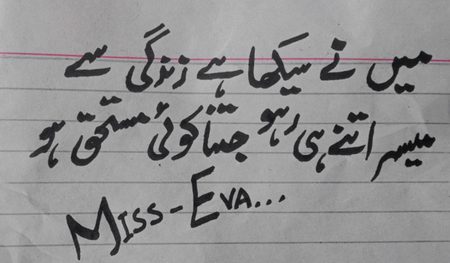 میں نے سیکھا ہے زندگی سے
میسر اتنے ہی رہو جتنا کوئی مستحق ہو
MISS-EVA...